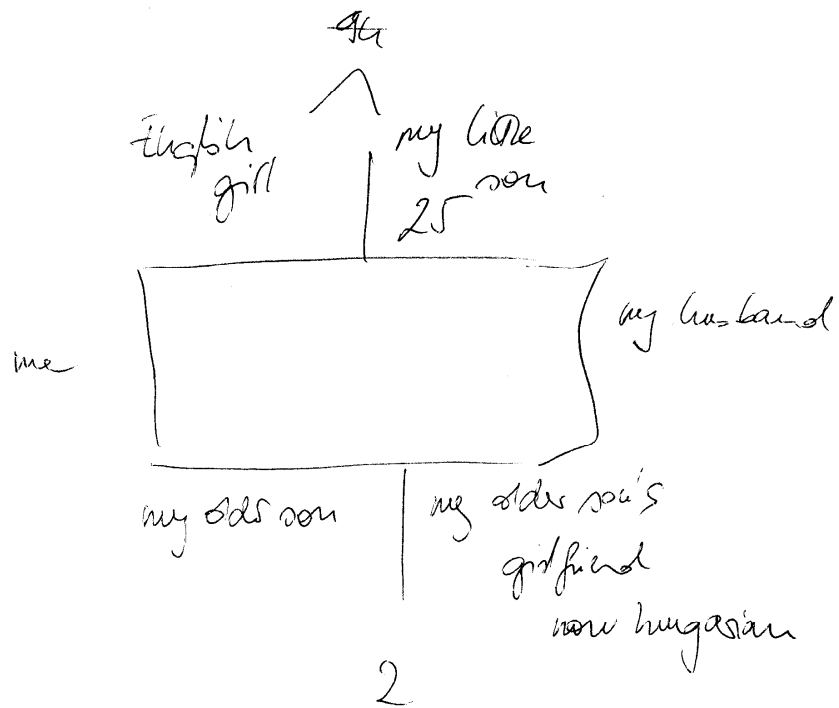 English
girl
my little
son
25
my husband
me
my older son
my older son's
girlfriend
now hungarian
2